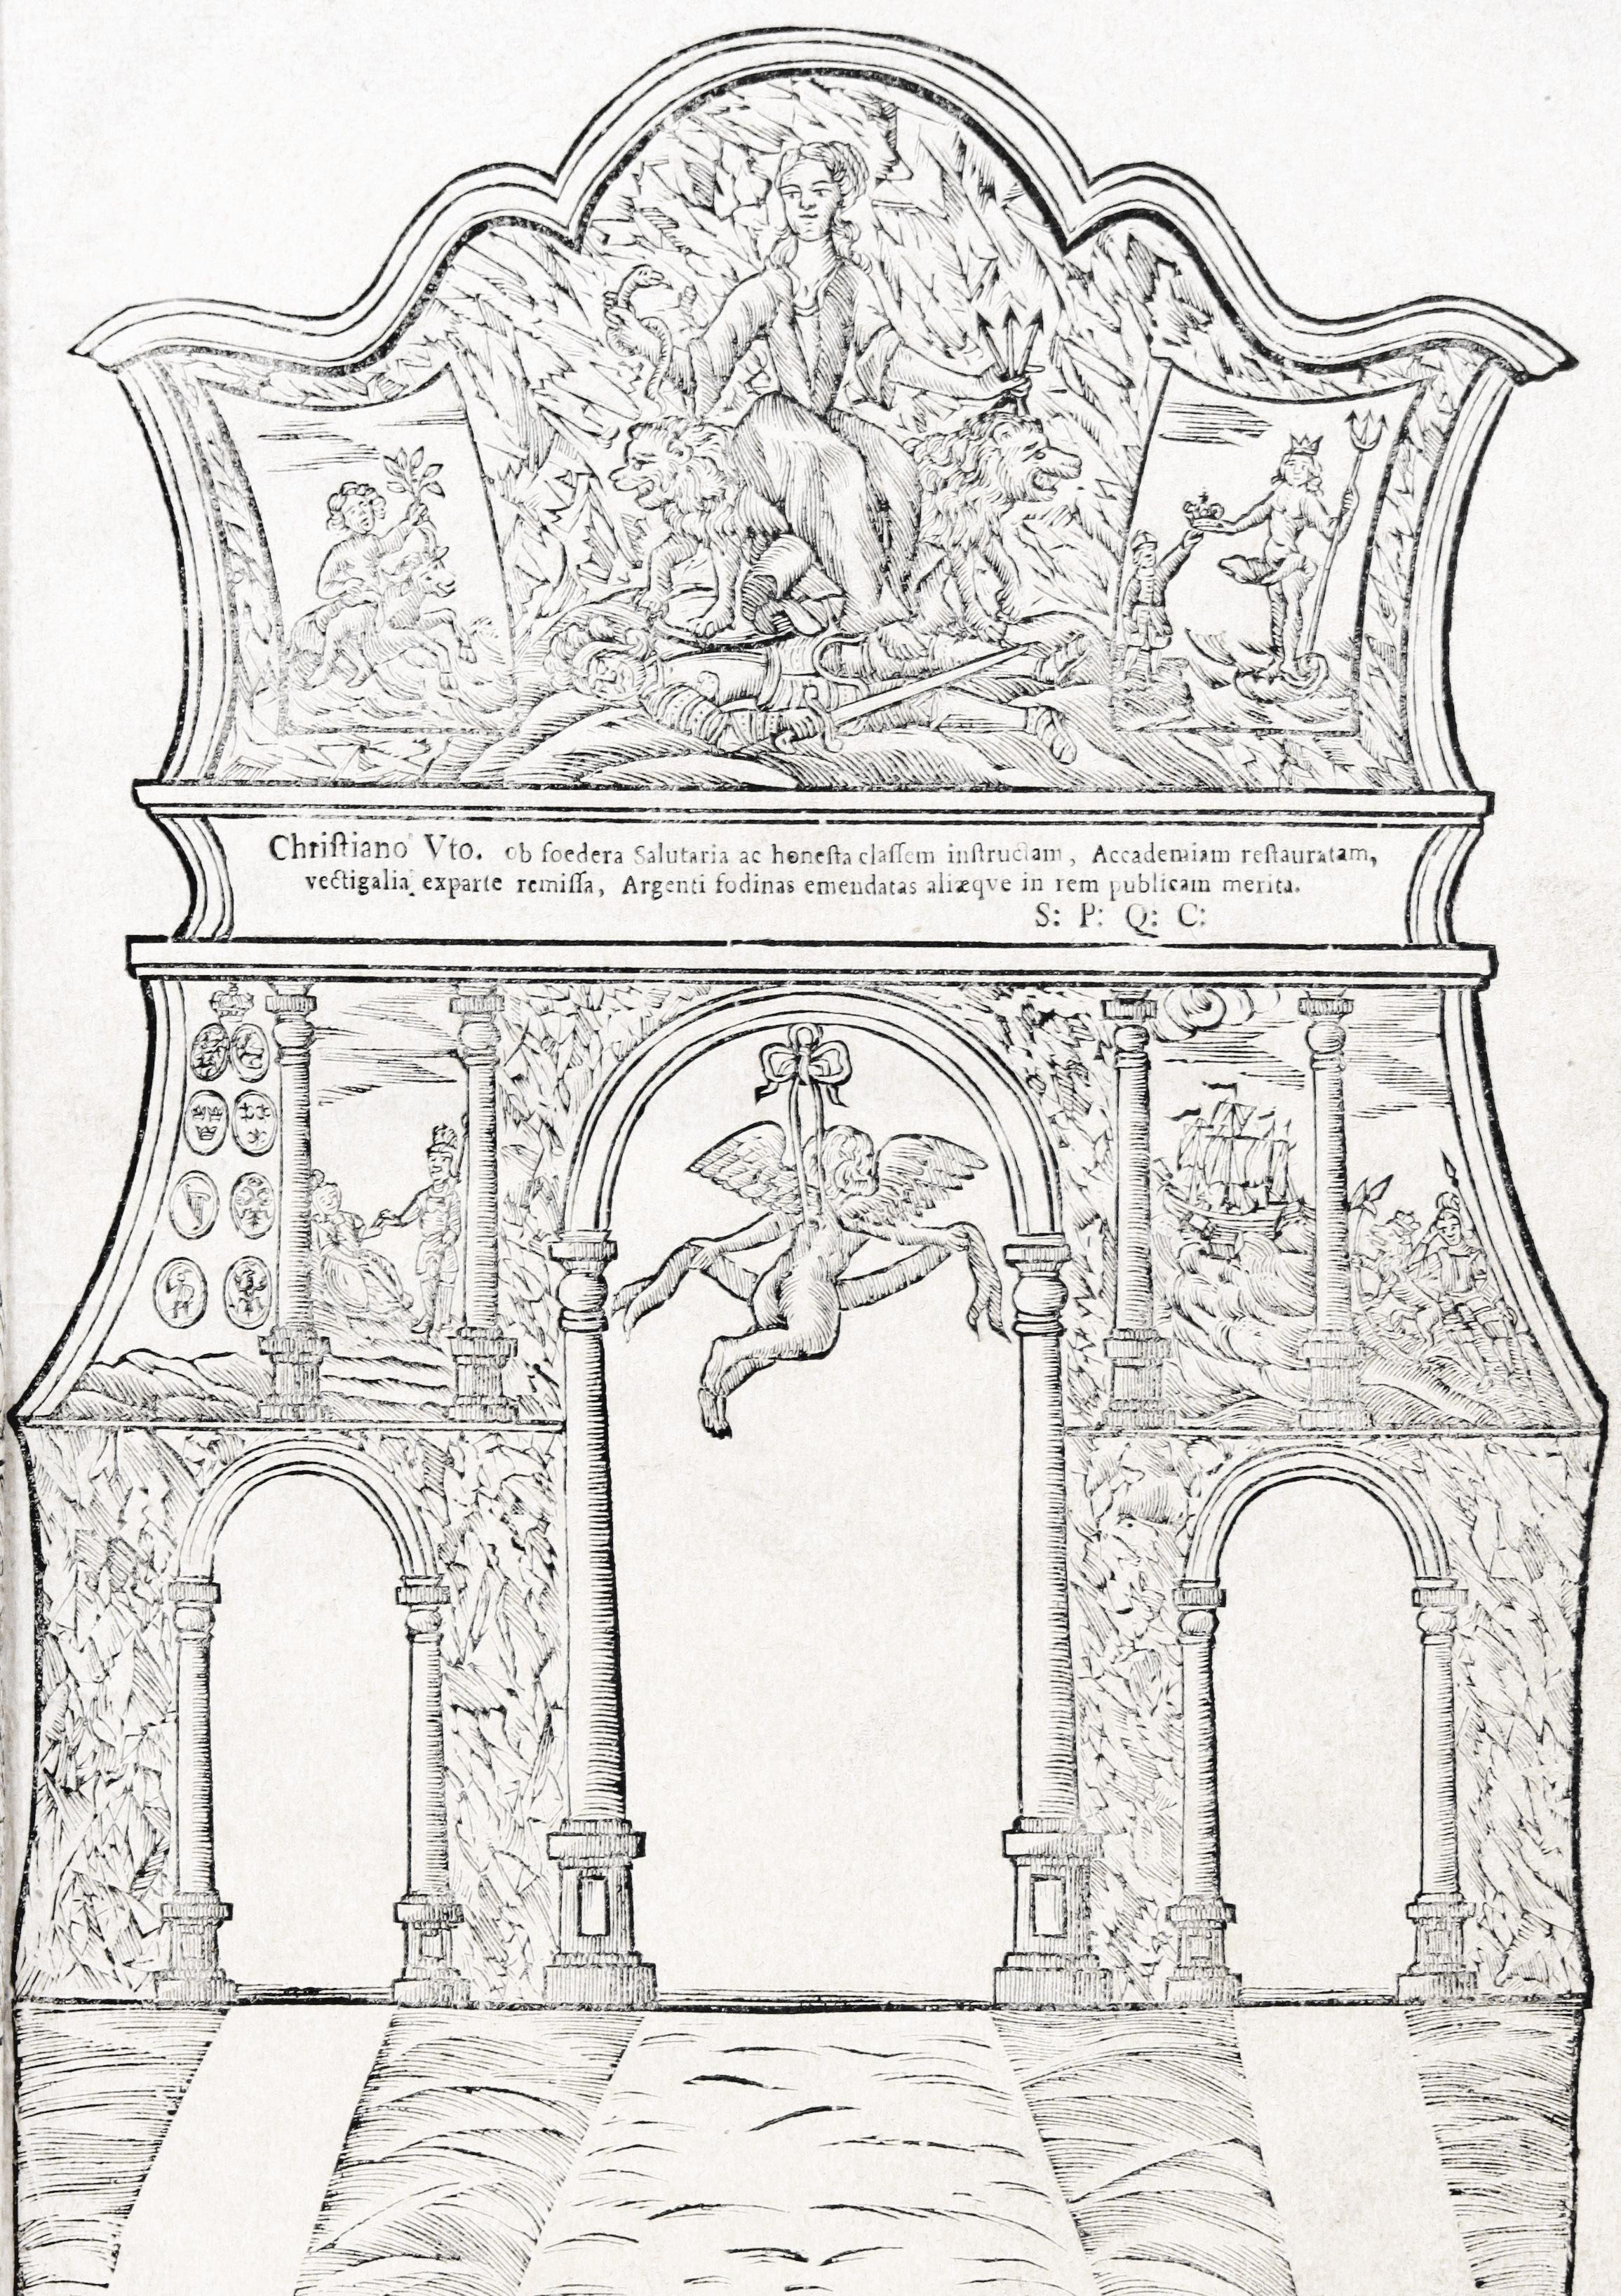 Chriſtiano Vto. ob foedera Salutaria ac honeſta claſſem inſtructam, Accademiam reſtauratam,
vectigalia exparte remiſſa, Argenti fodinas emendatas aliæqve in rem publicam merita.
S: P: Q: C: